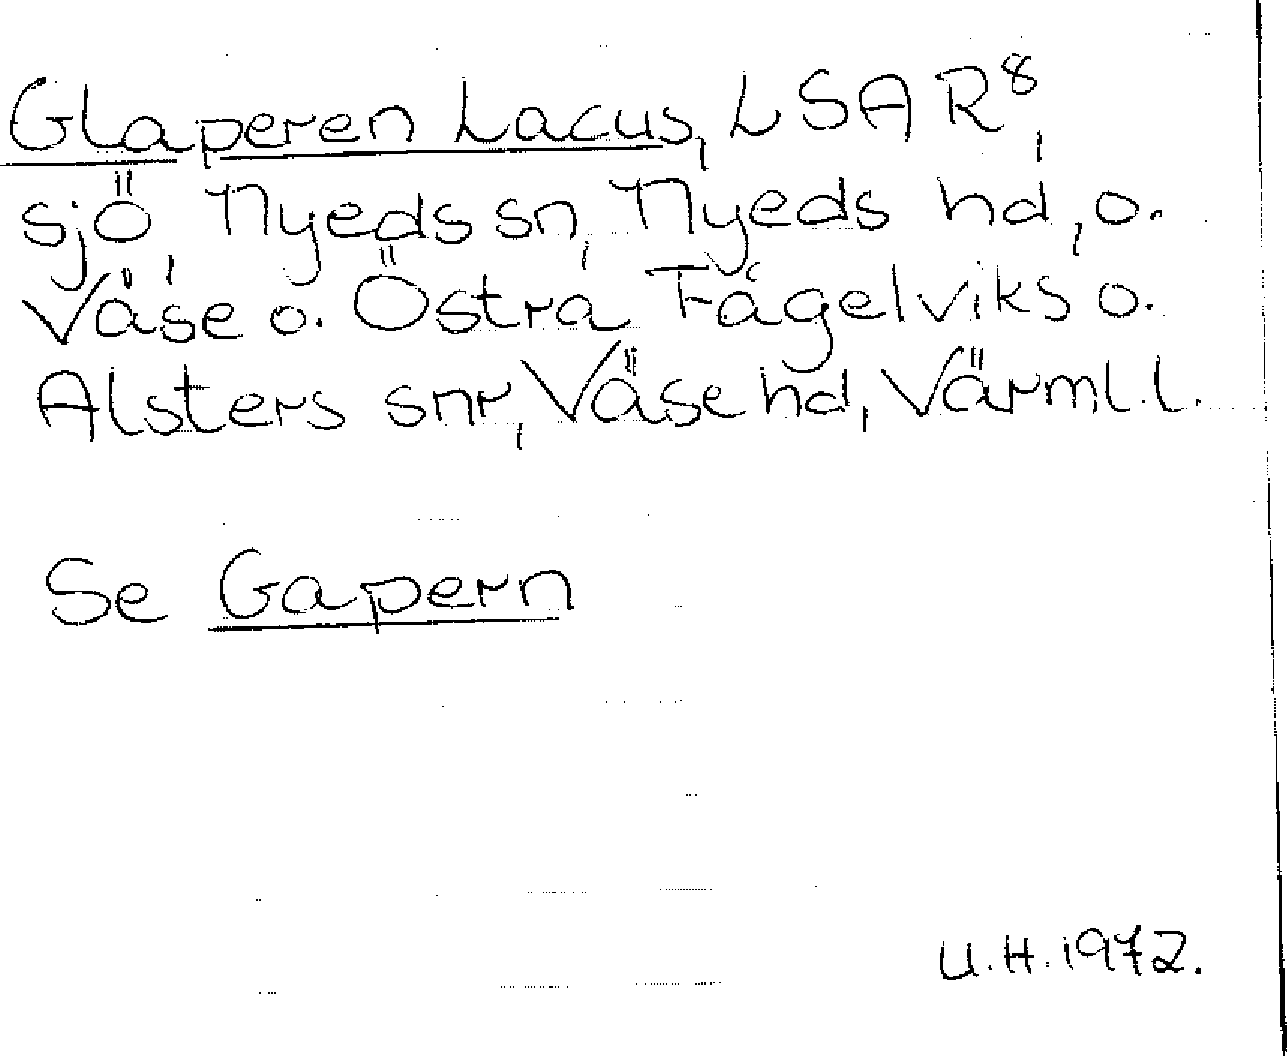 Glaperen Lacus, LSAR⁸,
sjö, Nyeds sn, Nyeds hd, o.
Väse o. Östra Fågelviks o.
Alsters snr, Väse hd, Värml. l.
Se Gapern
U.H. 1972.